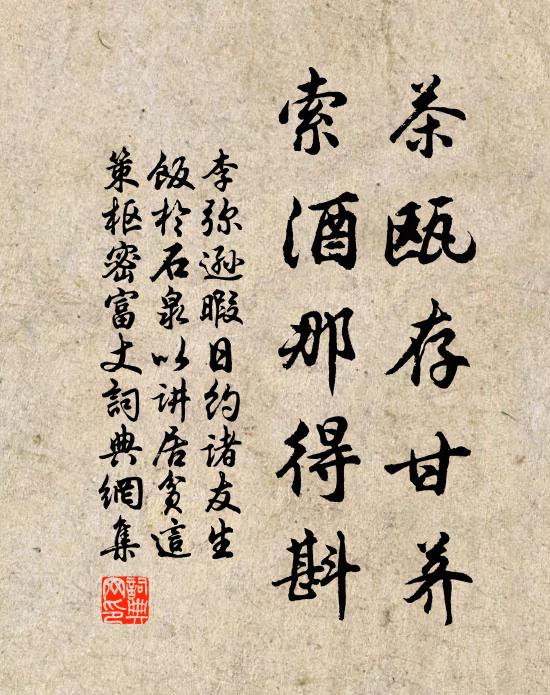 茶瓯存甘荞
索酒那得斟
李弥逊暇日约诸友生
饭于石泉以讲居贫这
策枢密富文词典網集
詞典
网印